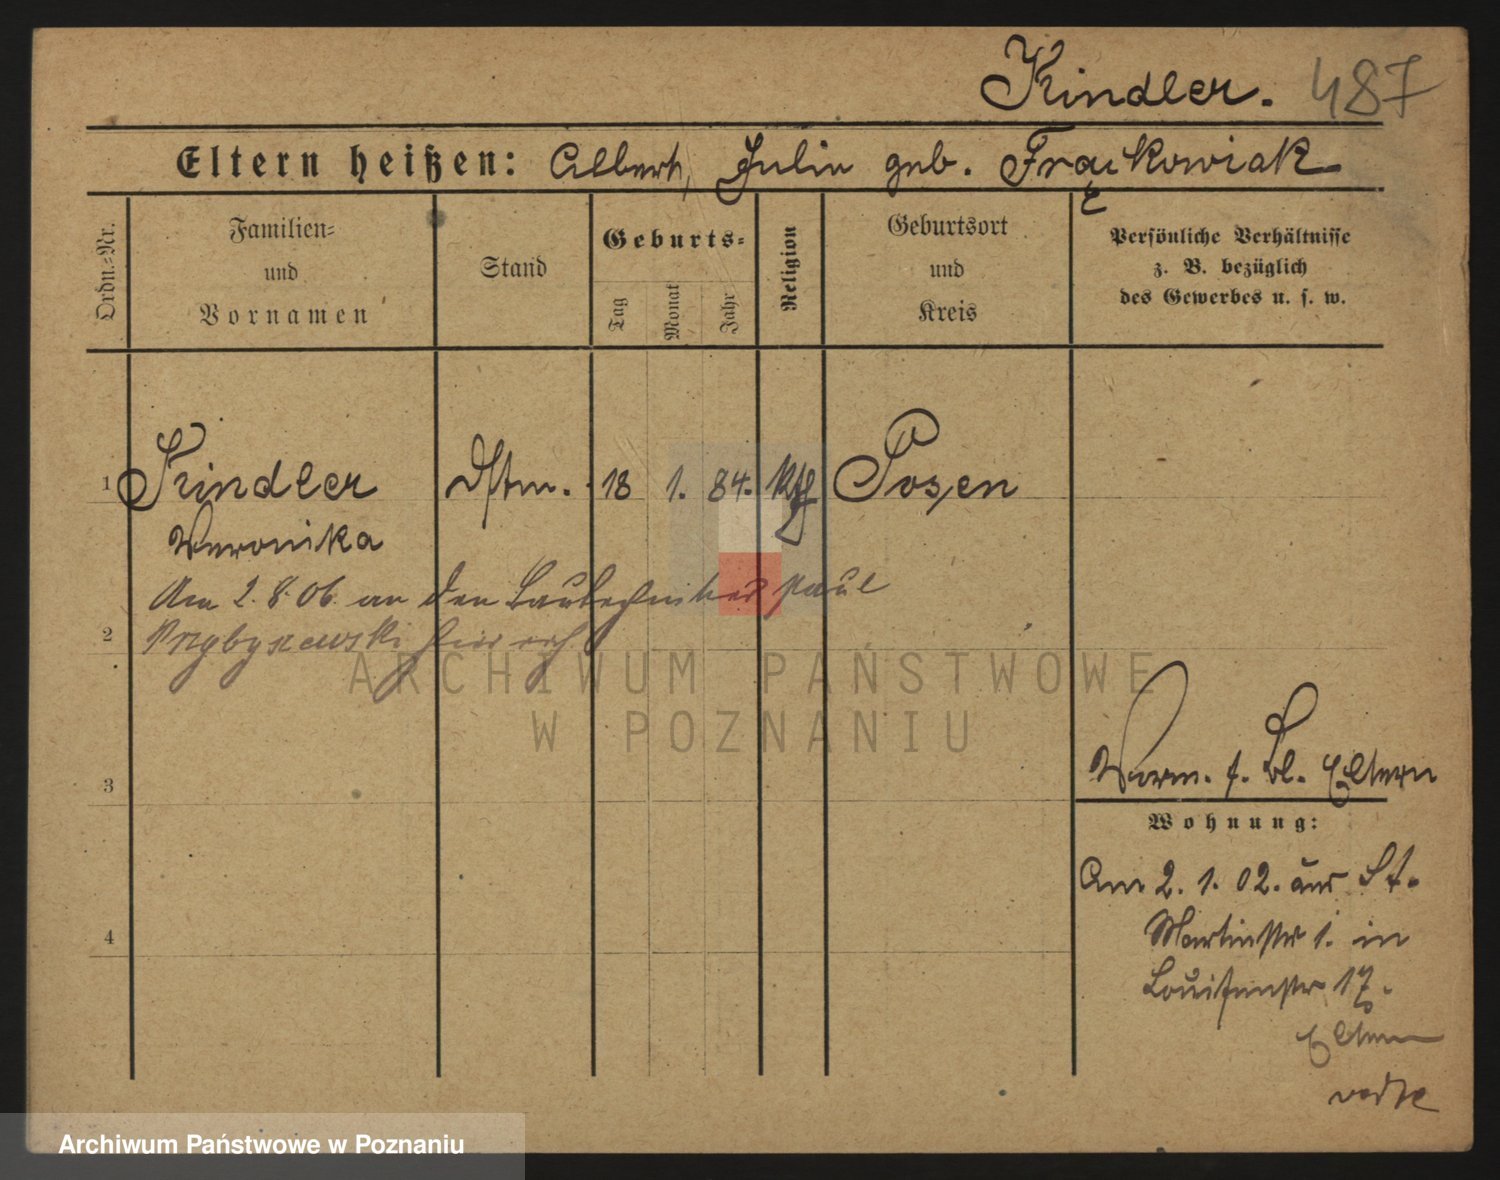 Kindler. 487
Eltern heißen: Albert, Julie geb. Frąckowiak
Ordn.-Nr.
Familien-
und
Vornamen
Stand
Geburts-
Tag
Monat
Jahr
Religion
Geburtsort
und
Kreis
Persönliche Verhältnisse
z. B. bezüglich
des Gewerbes u. s. w.
1 Kindler 18 1. 84. kth Posen
Veronika
Am 2.8.06 an den Bautechniker Paul
2 Przybyszewski hier
Verm. f. Bl. Eltern
3
Wohnung:
Am 2. 1. 02. aus St.
Martinstr 1. in
4
Louisenstr 17.
Eltern
ARCHIWUM PAŃSTWOWE
W POZNANIU
Archiwum Państwowe w Poznaniu